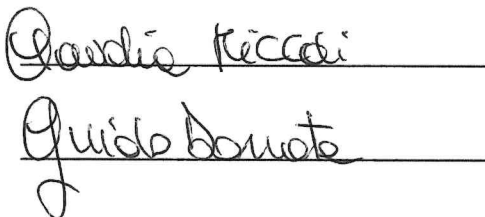 Claudia Riccai
Guido Donato